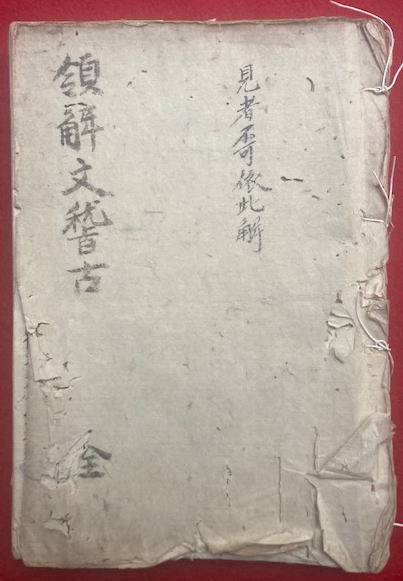 見者不可依此解
領解文稽古 全